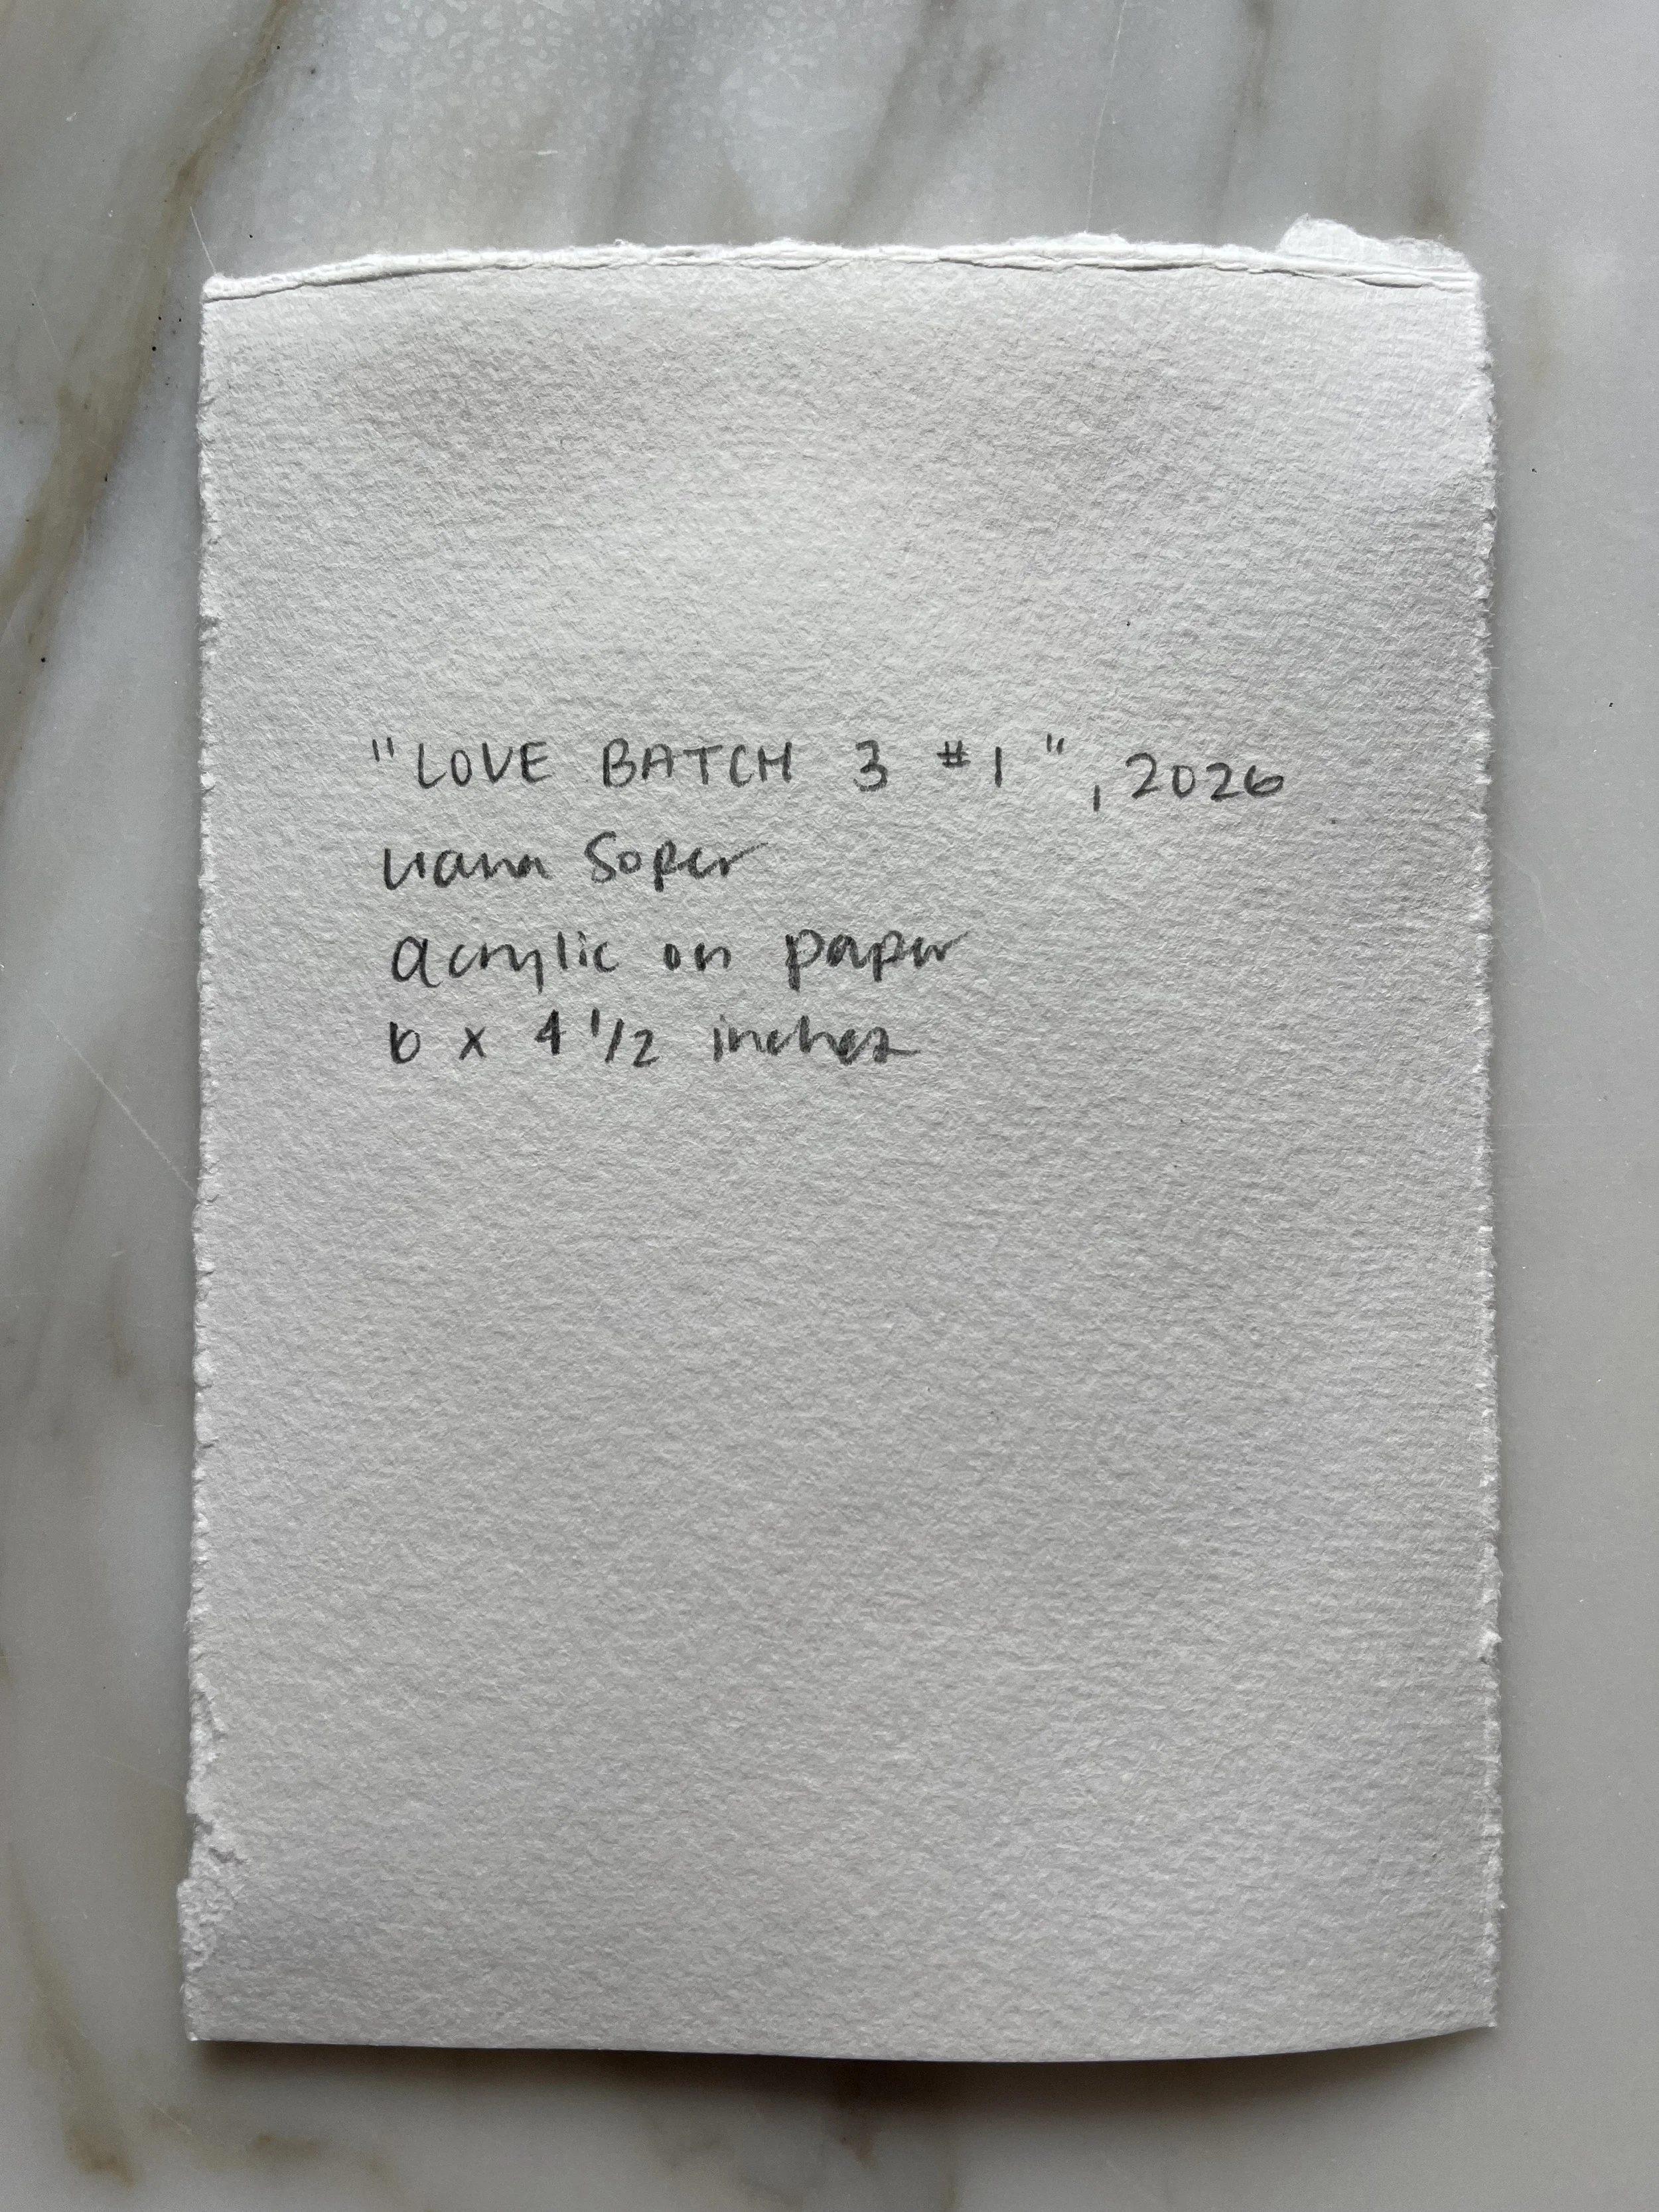 "LOVE BATCH 3 #1", 2026
Liana Soper
acrylic on paper
6 x 4 1/2 inches